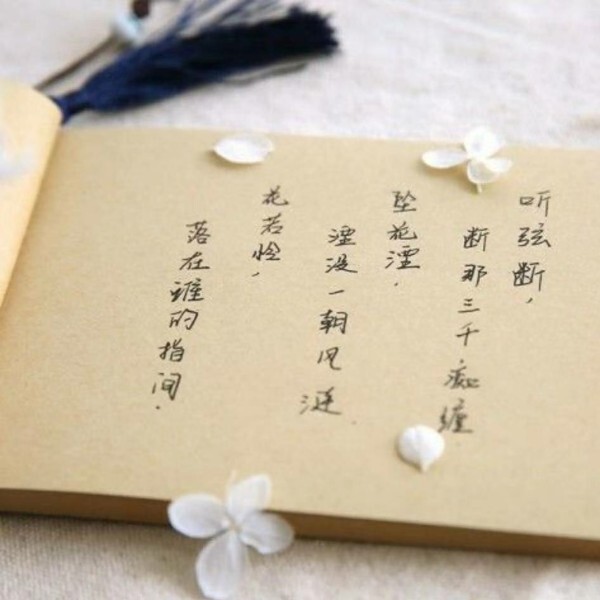 听弦断，
断那三千痴缠
坠花湮，
湮没一朝风涟．
花若怜，
落在谁的指间．